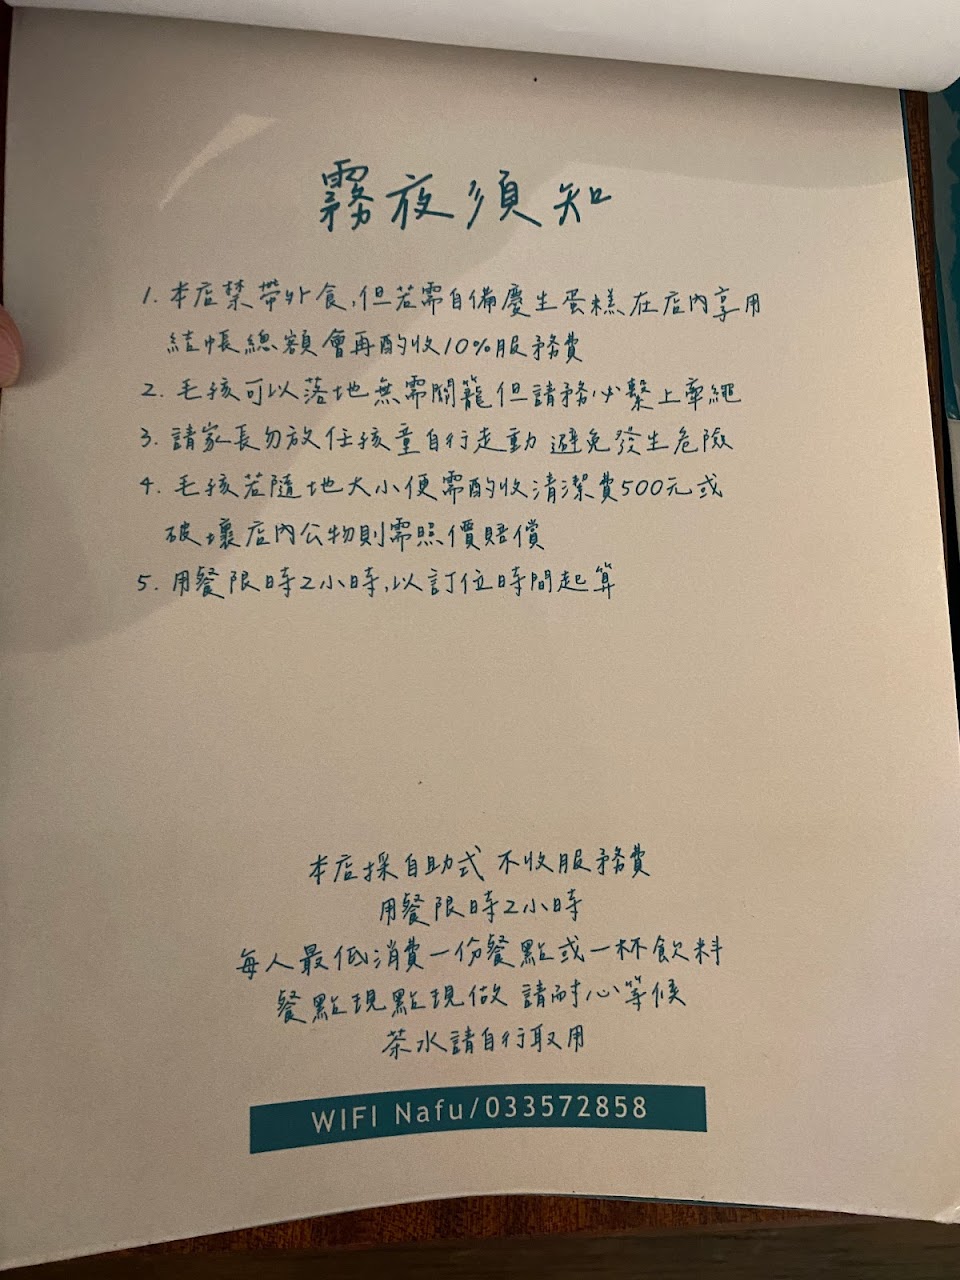 霧夜須知
1. 本店禁帶外食,但若需自備慶生蛋糕在店內享用
結帳總額會再酌收10%服務費
2. 毛孩可以落地無需關籠但請務必繫上牽繩
3. 請家長勿放任孩童自行走動 避免發生危險
4. 毛孩若隨地大小便需酌收清潔費500元或
破壞店內公物則需照價賠償
5. 用餐限時2小時,以訂位時間起算
本店採自助式 不收服務費
用餐限時2小時
每人最低消費一份餐點或一杯飲料
餐點現點現做 請耐心等候
茶水請自行取用
WIFI Nafu/033572858